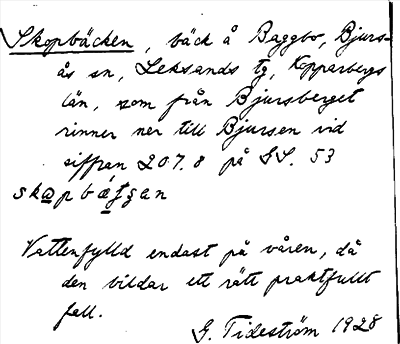 Skopbäcken, bäck å Baggbo, Bjurs-
ås sn, Leksands tg, Kopparbergs
län, som från Bjursberget
rinner ner till Bjursen vid
siffran 207.8 på GS. 53
Vattenfylld endast på våren, då
den bildar ett rätt praktfullt
fall.
G. Tideström 1928